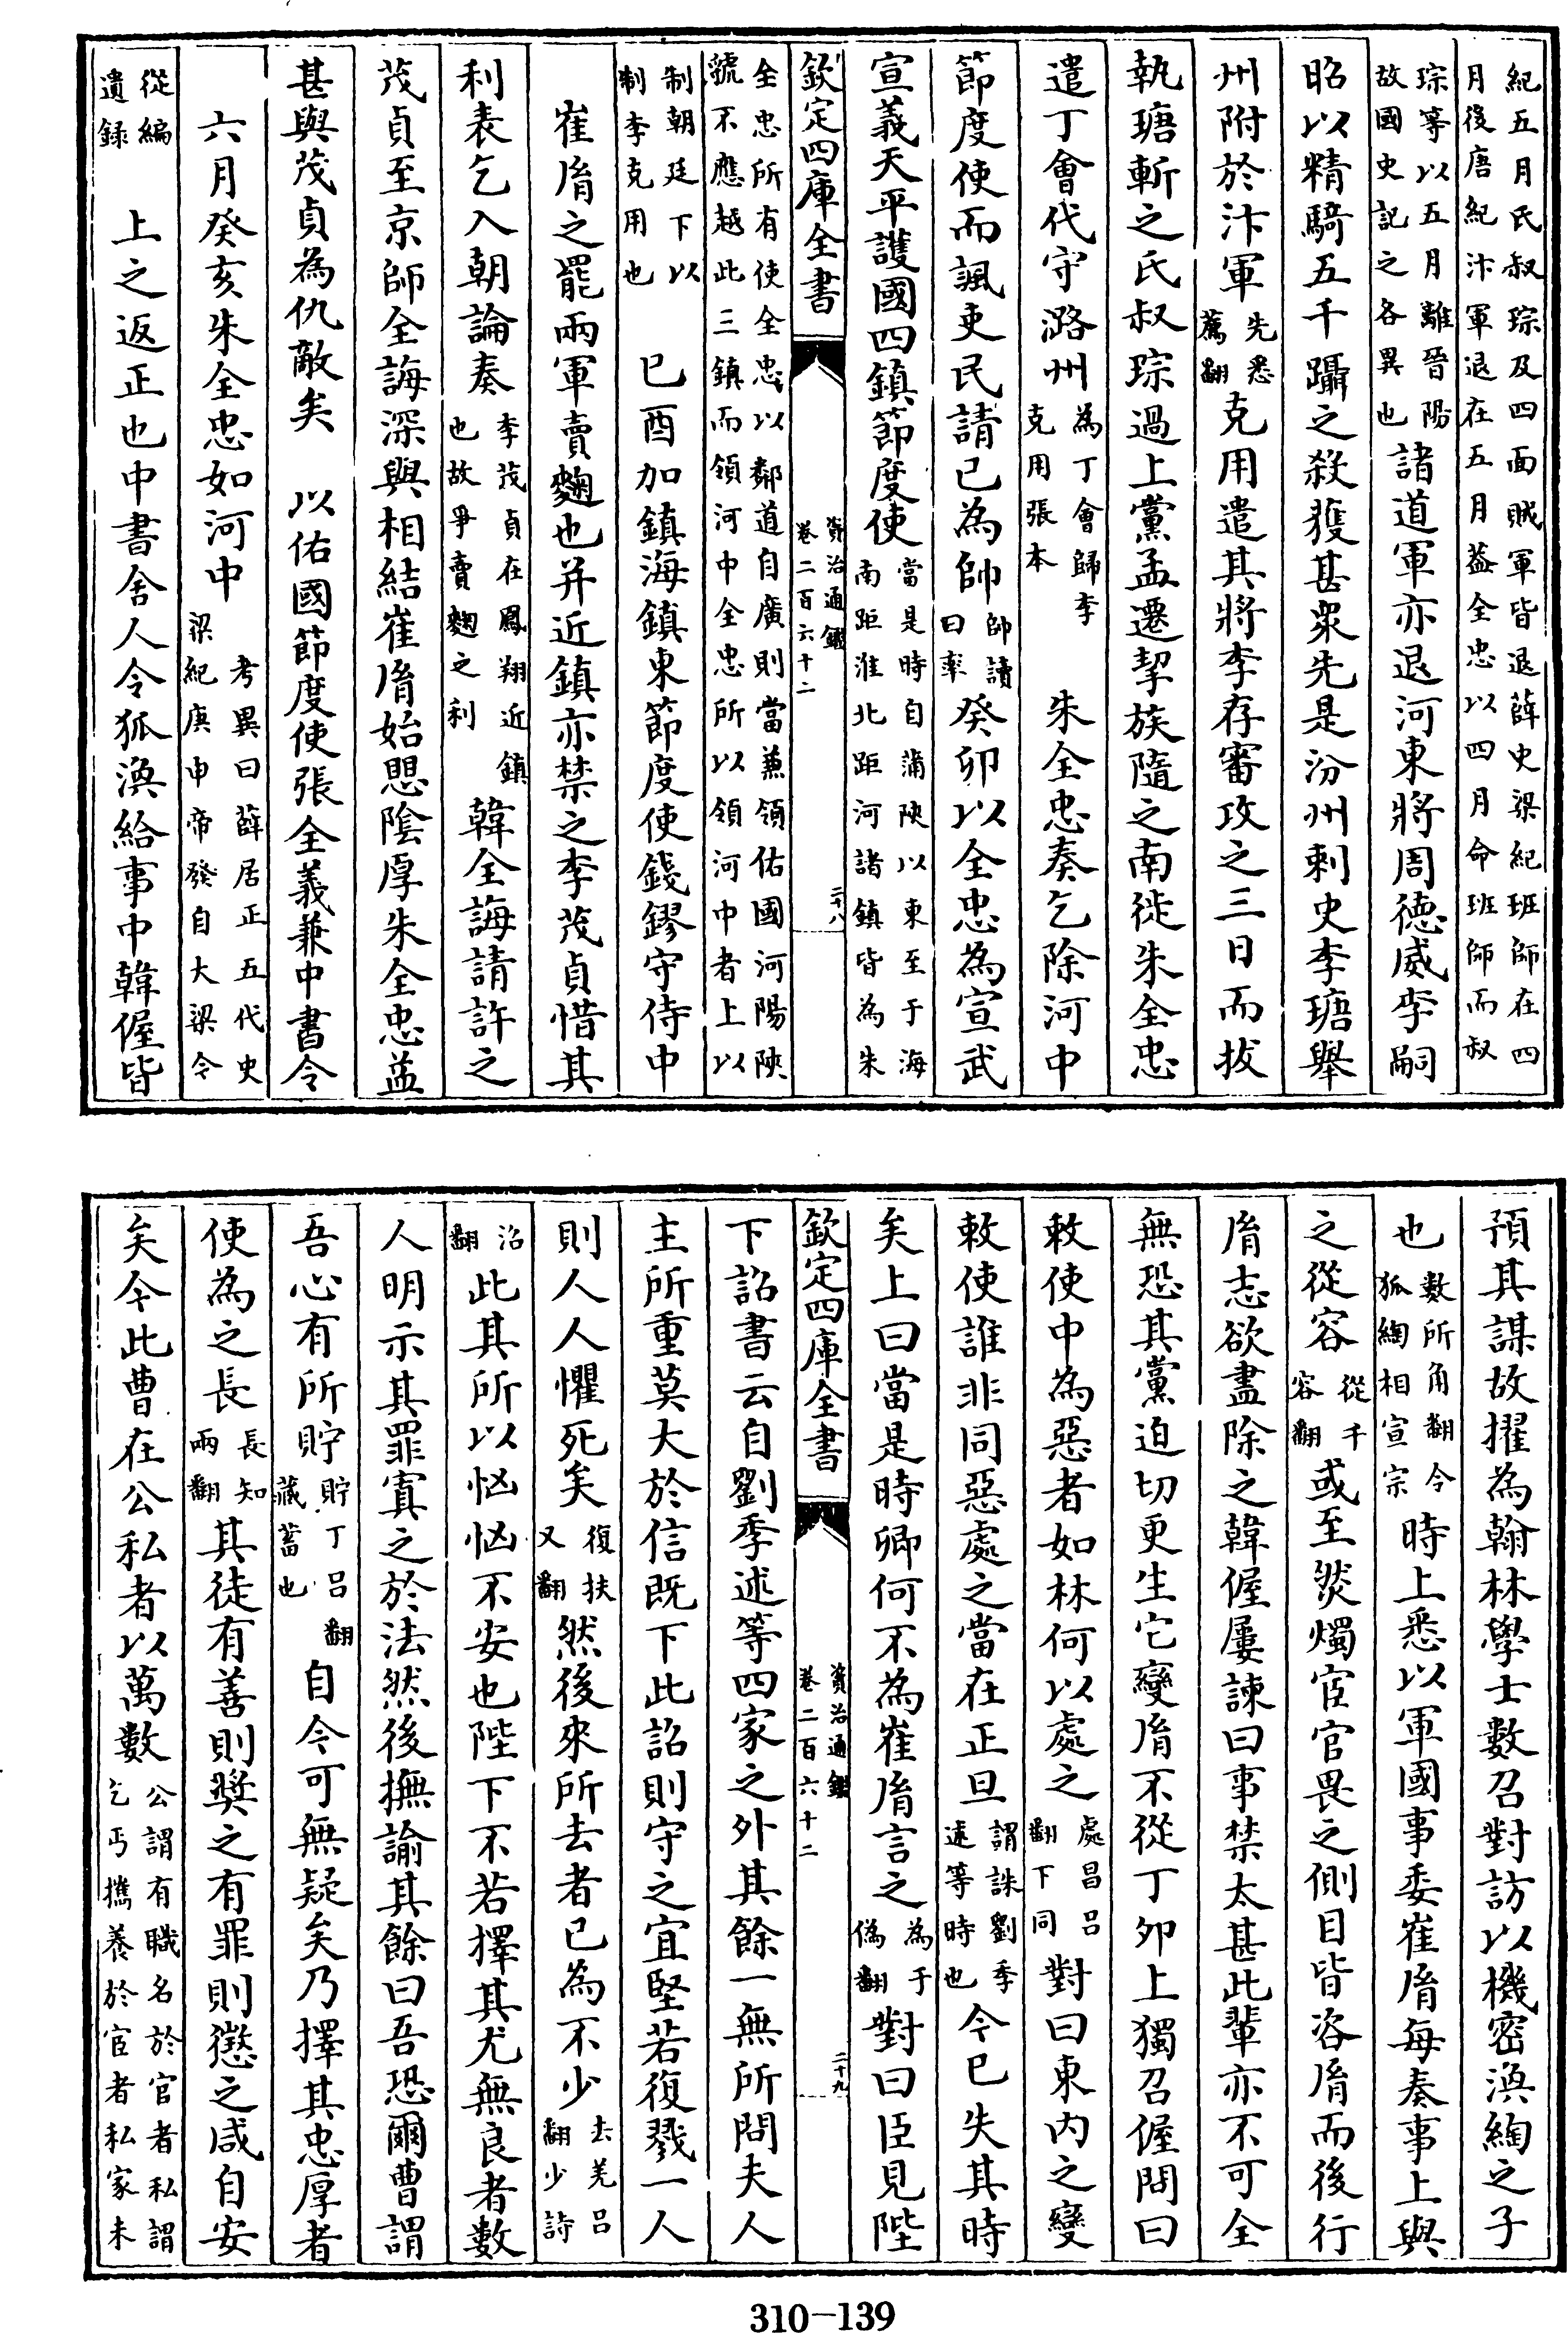 紀五月氏叔琮及四面賊軍皆退薛史梁紀班師在四
月後唐紀汴軍退在五月葢全忠以四月命班師而叔
琮等以五月離晉陽
故國史記之各異也
諸道軍亦退河東將周德威李嗣
昭以精騎五千躡之殺獲甚衆先是汾州刺史李瑭舉
州附於汴軍
先悉
薦翻
克用遣其將李存審攻之三日而拔
執瑭斬之氏叔琮過上黨孟遷挈族隨之南徙朱全忠
遣丁會代守潞州
為丁會歸李
克用張本
朱全忠奏乞除河中
節度使而諷吏民請己為帥
帥讀
曰率
癸卯以全忠為宣武
宣義天平護國四鎮節度使
當是時自蒲陜以東至于海
南距淮北距河諸鎮皆為朱
欽定四庫全書
資治通鑑
卷二百六十二
二十八
全忠所有使全忠以鄰道自廣則當兼領佑國河陽陜
虢不應越此三鎮而領河中全忠所以領河中者上以
制朝廷下以
制李克用也
己酉加鎮海鎮東節度使錢鏐守侍中
崔胤之罷兩軍賣麴也并近鎮亦禁之李茂貞惜其
利表乞入朝論奏
李茂貞在鳳翔近鎮
也故爭賣麴之利
韓全誨請許之
茂貞至京師全誨深與相結崔胤始懼陰厚朱全忠益
甚與茂貞為仇敵矣 以佑國節度使張全義兼中書令
六月癸亥朱全忠如河中
考異曰薛居正五代史
梁紀庚申帝發自大梁今
從編
遺録
上之返正也中書舍人令狐渙給事中韓偓皆
預其謀故擢為翰林學士數召對訪以機密渙綯之子
也
數所角翻令
狐綯相宣宗
時上悉以軍國事委崔胤每奏事上與
之從容
從千
容翻
或至然燭宦官畏之側目皆咨胤而後行
胤志欲盡除之韓偓屢諫曰事禁太甚此輩亦不可全
無恐其黨迫切更生它變胤不從丁夘上獨召偓問曰
敕使中為惡者如林何以處之
處昌吕
翻下同
對曰東内之變
敕使誰非同惡處之當在正旦
謂誅劉季
述等時也
今已失其時
矣上曰當是時卿何不為崔胤言之
為于
偽翻
對曰臣見陛
欽定四庫全書
資治通鑑
卷二百六十二
二十九
下詔書云自劉季述等四家之外其餘一無所問夫人
主所重莫大於信既下此詔則守之宜堅若復戮一人
則人人懼死矣
復扶
又翻
然後來所去者已為不少
去羌吕
翻少詩
沼
翻
此其所以忷忷不安也陛下不若擇其尤無良者數
人明示其罪寘之於法然後撫諭其餘曰吾恐爾曹謂
吾心有所貯
貯丁吕翻
藏蓄也
自今可無疑矣乃擇其忠厚者
使為之長
長知
兩翻
其徒有善則奬之有罪則懲之咸自安
矣今此曹在公私者以萬數
公謂有職名於官者私謂
乞丐攜養於宦者私家未
310-139